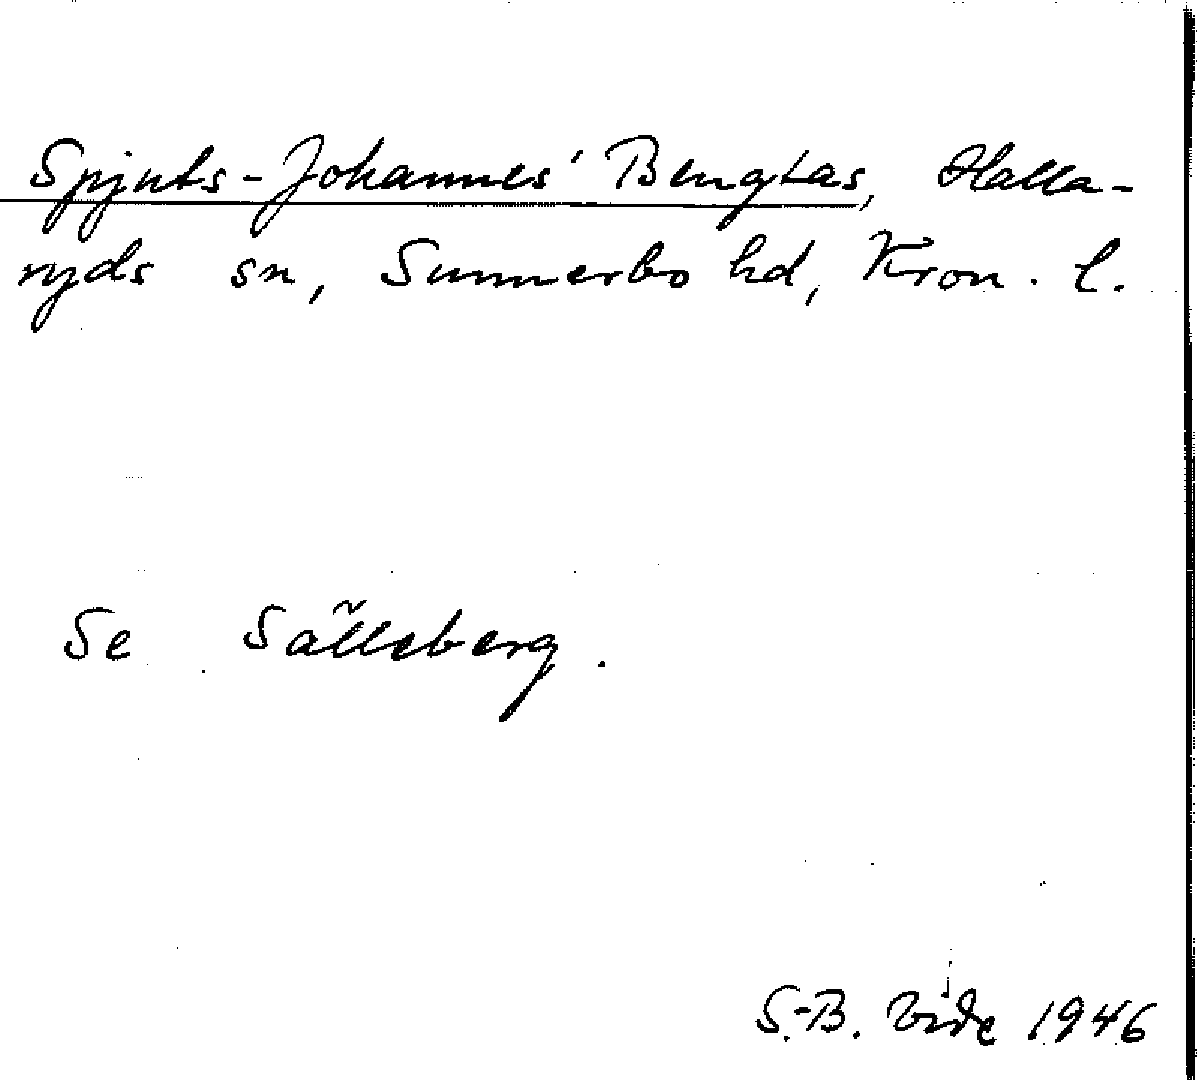 Spjuts-Johannes' Bengtas, Halla-
ryds sn, Sunnerbo hd, Kron. l.
Se Sälleberg.
S.-B. Vide 1946